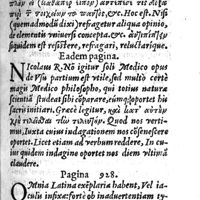 καὶ ὁ
τὸ
&c. Hoc est. Nisi
(quodammodo dixi) refragetur aliqua opinio,
de elementis vniuersi concepta. &c.
siquidem est resistere, refragari, reluctarique.
Eadem pagina.
Nicolaus R. Nō igitur soli Medico opus
de vsu partium est vtile, sed multò certè
magis Medico philosopho, qui totius naturæ
scientiā studeat sibi cōparare, eūmq́; oportet his
sacris initiari. Græcè legitur, κατ' αὐτὴν
χρὴ τελεῖσθαι τὴν τελετήν. Quod nos vertimus,
Iuxta cuius indagationem nos cōsenescere
oportet. Licet etiam ad verbum reddere, In cuius
quidem indagine oportet nos diem vltimū
claudere.
Pagina 928.
OMnia Latina exēplaria habent, Vel iaculis
infixa: fortè ob inaduertentiam ty-